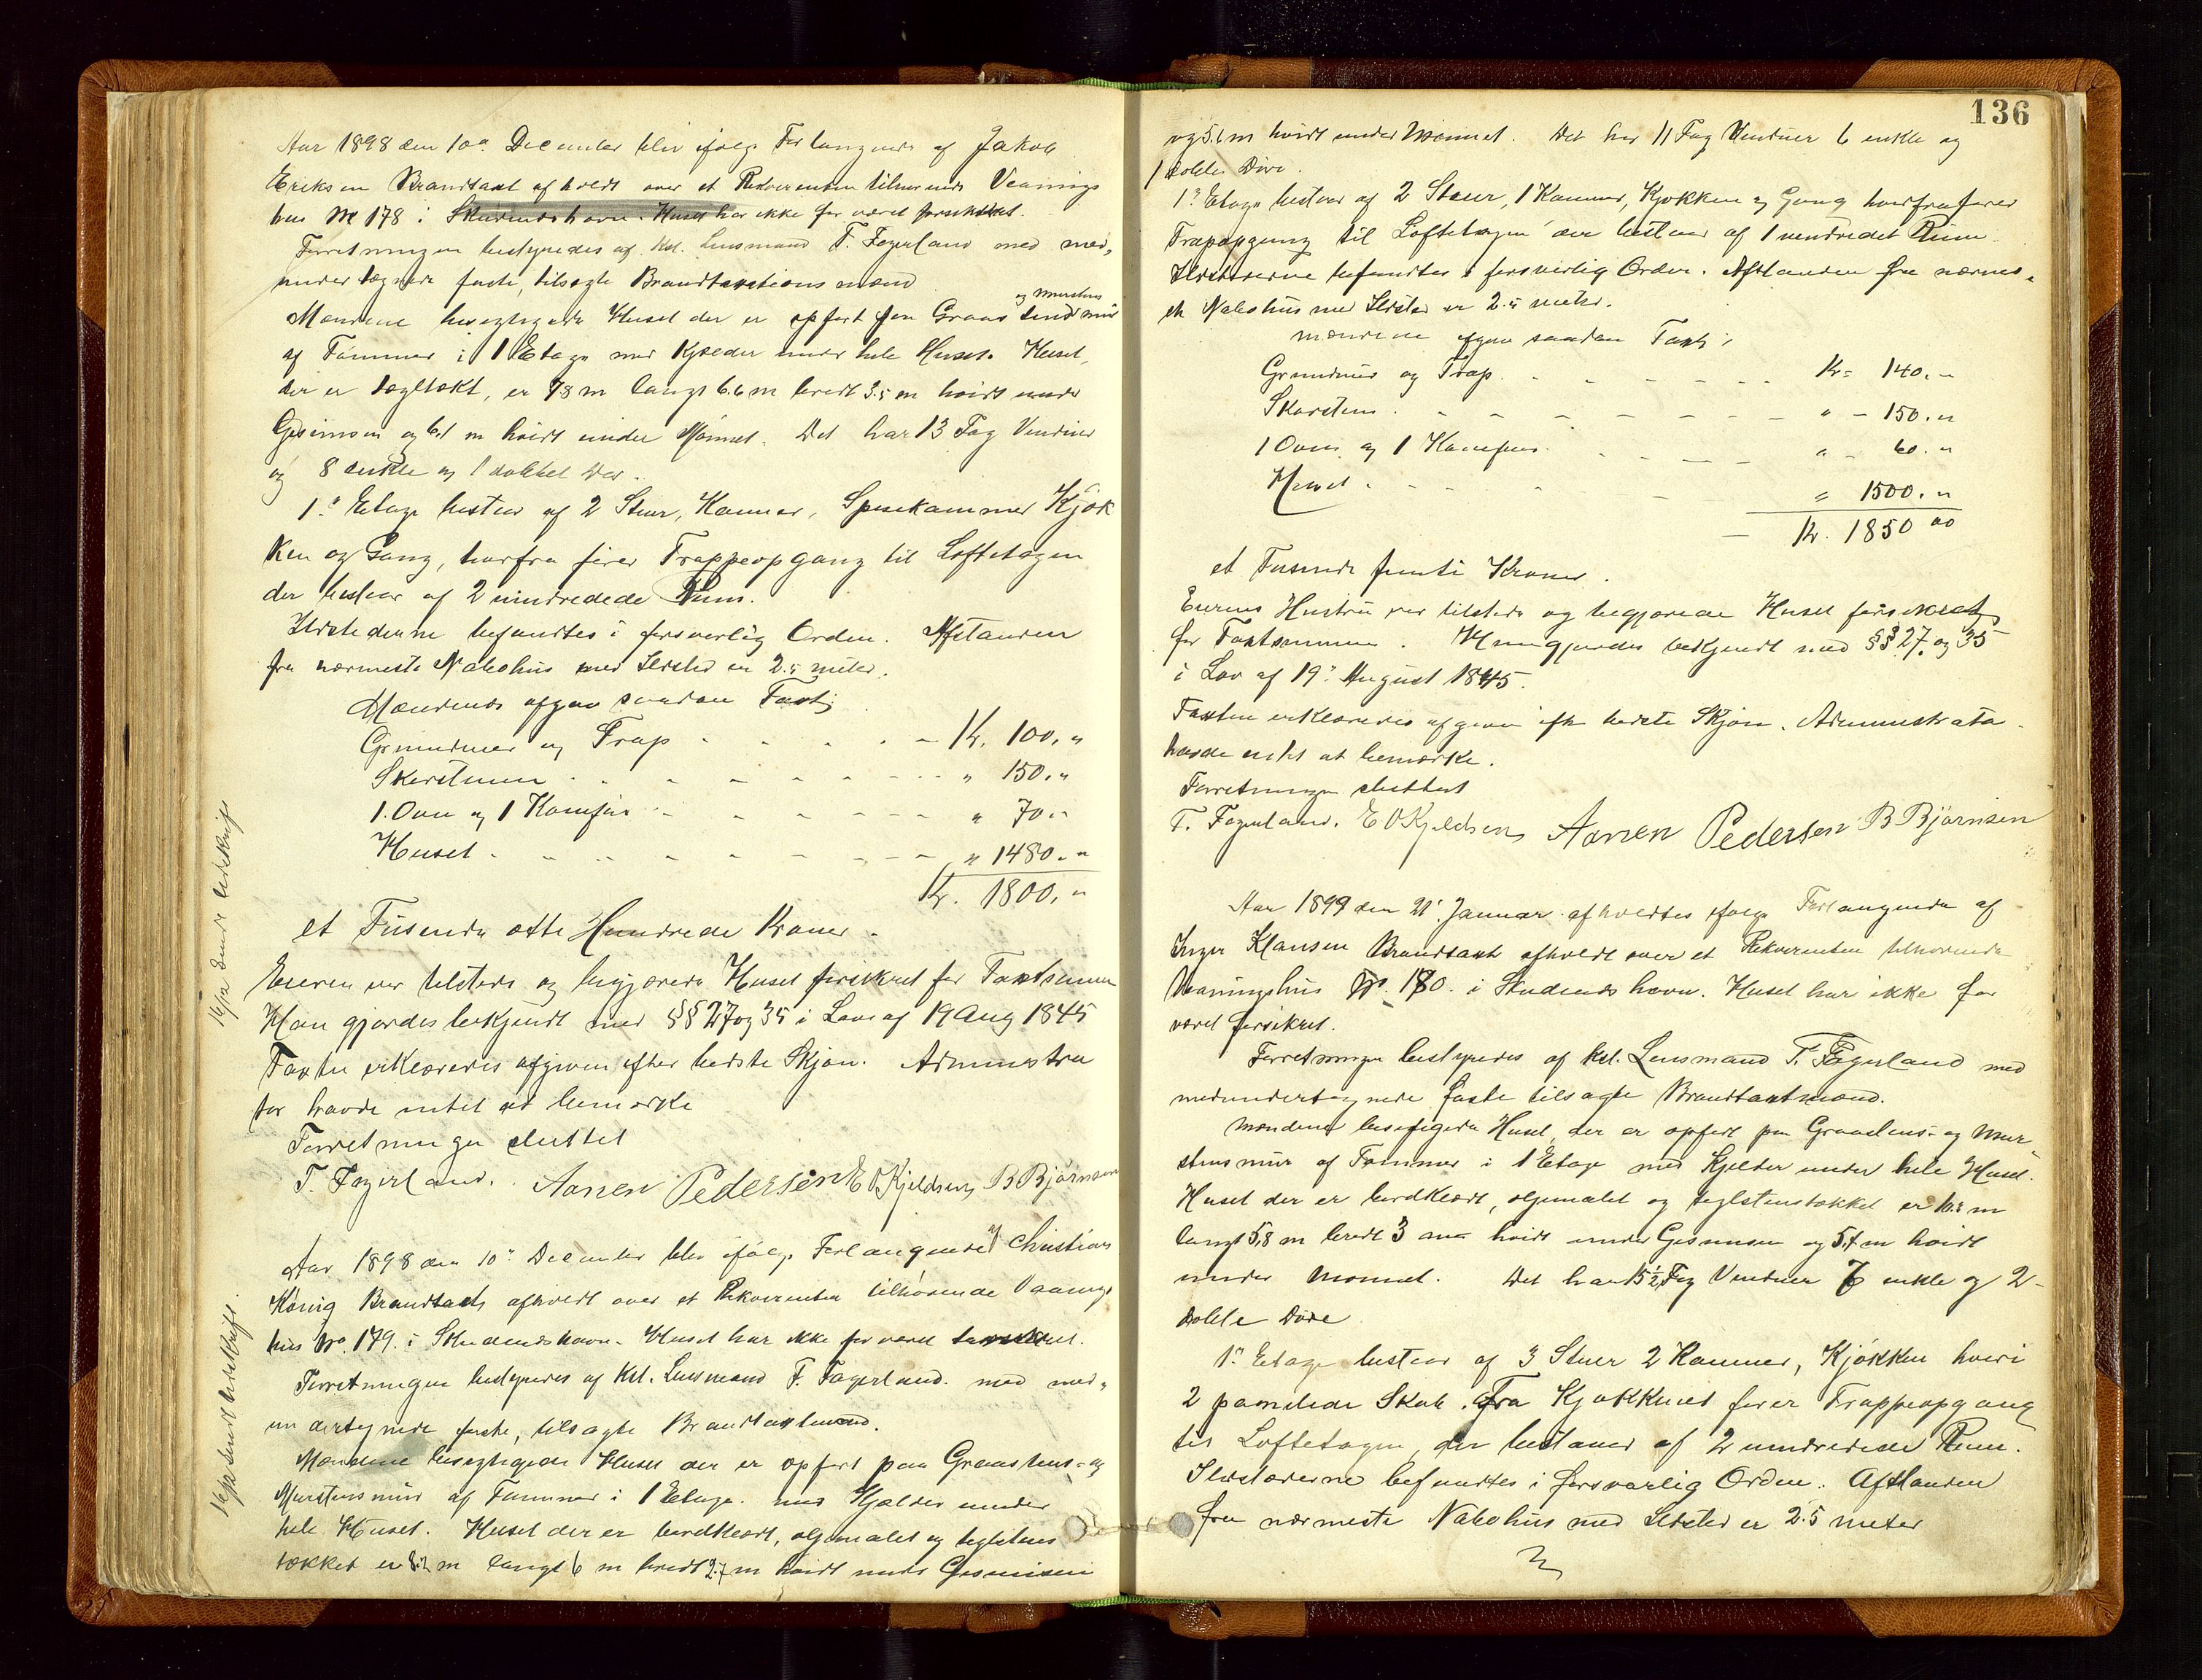 Aar 1898 den 10de December blev ifølge Forlangende af Jakob
Eriksen Brandtaxt afholdt over et Rekvirenten tilhørende Vaanings
hus No 178 i Skudeneshavn. Huset har ikke før været forsikret.
Forretningen bestyredes af kst. Lensmand T. Fagerland med med„
undertegnede faste, tilsagte Brandtaxtionsmænd
Mændene besigtigede Huset der er opført paa Graasteinsmur
og Mursteins
af Tømmer i 1 Etage med Kjælder under hele Huset. Huset,
der er tægltækt, er 7.8 m langt 6.6 m bredt 3.5 m høidt under
Gesimsen og 6.1 m høidt under Mønnet. Det har 13 Fag Vinduer
og 8 enkle og 1 dobbel Dør.
1ste Etage bestaar af 2 Stuer, Kammer, Spisekammer Kjøk
ken og Gang, hvorfra fører Trappeopgang til Loftetagen
der bestaar af 2 uindredede Rum.
Ildstederne befandtes i forsvarlig Orden. Afstanden
fra nærmeste Nabohus med Ildsted er 2.5 meter.
Mændende afgav saadan Taxt;
Grundmur og Trap - - - - - Kr. 100. "
Skorstenen - - - - - - - " 150. "
1 Ovn og 1 Komfur - - - - - - " 70. "
Huset - - - - - - - - " 1480. "
Kr. 1800. "
et Tusende otte Hundrede Kroner.
Eieren var tilstede og begjærede Huset forsikret for Taxtsummen
Han gjordes bekjendt med §§ 27 og 35 i Lov af 19 Aug 1845
Taxten erklæredes afgiven efter bedste Skjøn. Administra
tor havde intet at bemærke
Forretningen sluttet
T. Fagerland. Aanen Pedersen E O Kjeldsen B Bjørnsen
16/12 sendt Udskrift
Aar 1898 den 10de December blev ifølge Forlangende af Christian
König Brandtaxt afholdt over et Rekvirenten tilhørende Vaanings
hus No. 179. i Skudeneshavn. Huset har ikke før været forsikret.
Forretningen bestyredes af Kst. Lensmand T. Fagerland med med„
undertegnede faste, tilsagte Brandtaxtmænd.
Mændene besigtigede Huset der er opført paa Graastens- og
Murstensmur af Tømmer i 1 Etage med Kjælder under
hele Huset. Huset der er bordklædt, oljemalet og teglstens
tækket er 8.2 m langt 6 m bredt 2.7 m høidt under Gesimsen
16/12 sendt Udskrift.
136
og 5.6 m høidt under Mønnet. Det har 11 Fag Vinduer 6 enkle og
1 doble Døre.
1ste Etage bestaar af 2 Stuer, 1 Kammer, Kjøkken og Gang hvorfra fører
Trapopgang til Loftetagen der bestaar af 1 uindredet Rum.
Ildstederne befandtes i forsvarlig Orden. Afstanden fra nærmes„
te Nabohus med Ildsted er 2.5 meter.
Mændene afgav saadan Taxt;
Grundmur og Trap. - - - - - - Kr. 140. "
Skorsten. - - - - - - - - " - 150. "
1 Ovn og 1 Komfur. - - - - " - 60. "
Huset. - - - - - " 1500. "
Kr. 1850 00
et Tusende femti Kroner.
Eierens Hustru var tilstede og begjærede Huset forsikret
for Taxtsummen. Hun gjordes bekjendt med §§ 27 og 35
i Lov af 19de August 1845.
Taxten erklæredes afgiven efter bedste Skjøn. Administrator
havde intet at bemærke.
Forretningen sluttet
T. Fagerland. E O Kjeldsen Aanen Pedersen B Bjørnsen
Aar 1899 den 21de Januar afholdtes ifølge Forlangende af
Inger Klausen Brandtaxt afholdt over et Rekvirenten tilhørende
Vaaningshus No. 180. i Skudeneshavn. Huset har ikke før
været forsikret.
Forretningen bestyredes af kst. Lensmand T. Fagerland med
medundertegnede faste tilsagte Brandtaxtmænd.
Mændene besigtigede Huset, der er opført paa Graastens- og Mur
stensmur af Tømmer i 1 Etage med Kjelder under hele Huset.
Huset der er bordklædt, oljemalet og teglstenstækket er 10.2 m
langt 5.8 m bredt 3 m høidt under Gesimsen og 5.7 m høidt
under Mønnet. Det har 15½ Fag Vinduer 7 enkle og 2
doble Døre
1ste Etage bestaar af 3 Stuer 2 Kammer, Kjøkken hvori
2 panelede Skab. Fra Kjøkkenet fører Trappeopgang
til Loftetagen, der bestaaer af 2 uindredede Rum.
Ildstederne befandtes i forsvarlig Orden. Afstanden
fra nærmeste Nabohus med Ildsted er 2.5 meter